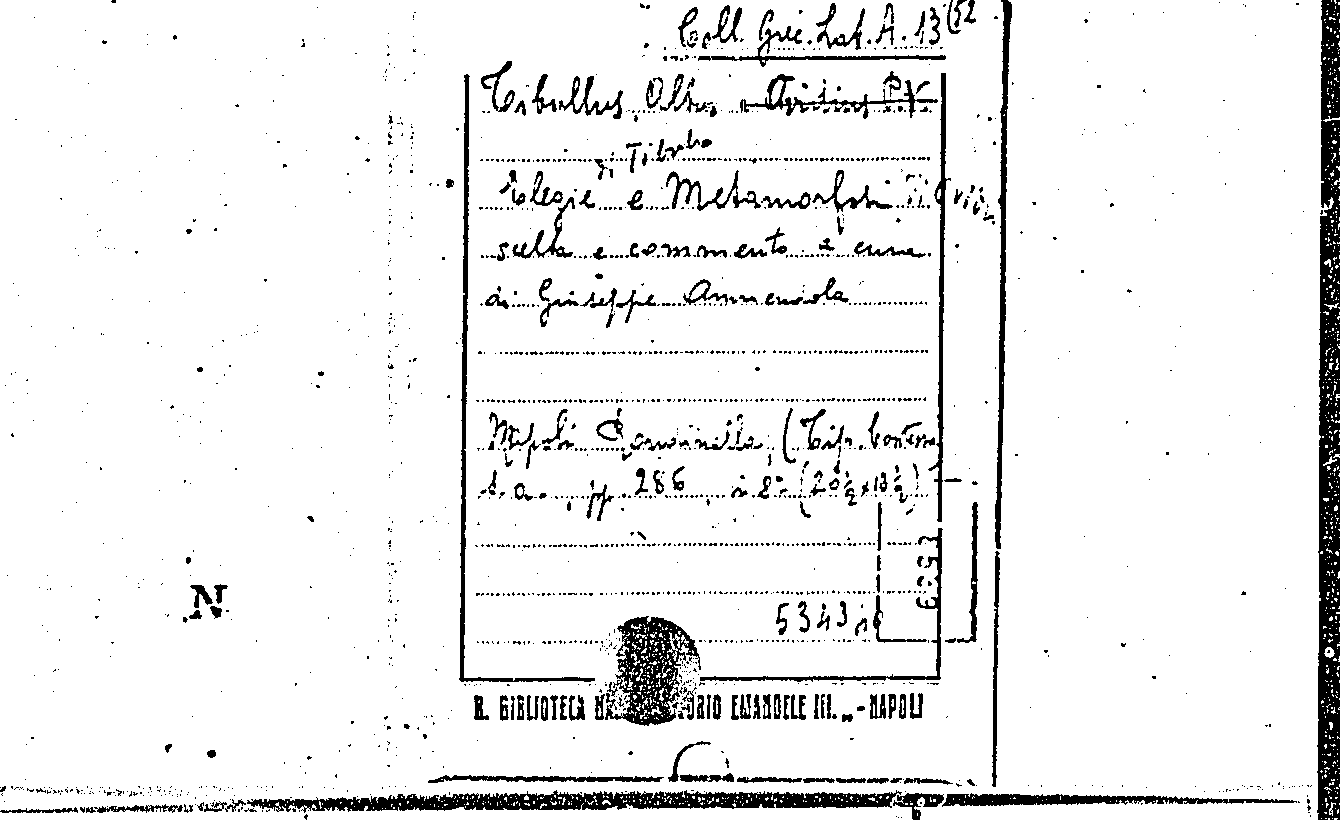 Coll. Grec. Lat. A. 13 (52
Tibullus, Albius e Ovidius P. N.
di Tibullo
Elegie e Metamorfosi di Ovidio
scelta e commento a cura
di Giuseppe Ammendola
Napoli Rondinella, (Tip. Contessa
s. a., pp. 286, in 8° (20½ x 13½)
6353
5343
N
R. BIBLIOTECA VITTORIO EMANUELE III. „ - NAPOLI